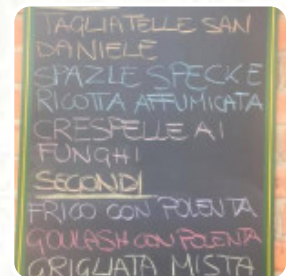 TAGLIATELLE SAN
DANIELE
SPAZLE SPECK E
RICOTTA AFFUMICATA
CRESPELLE AI
FUNGHI
SECONDI
FRICO CON POLENTA
GOULASH CON POLENTA
GRIGLIATA MISTA